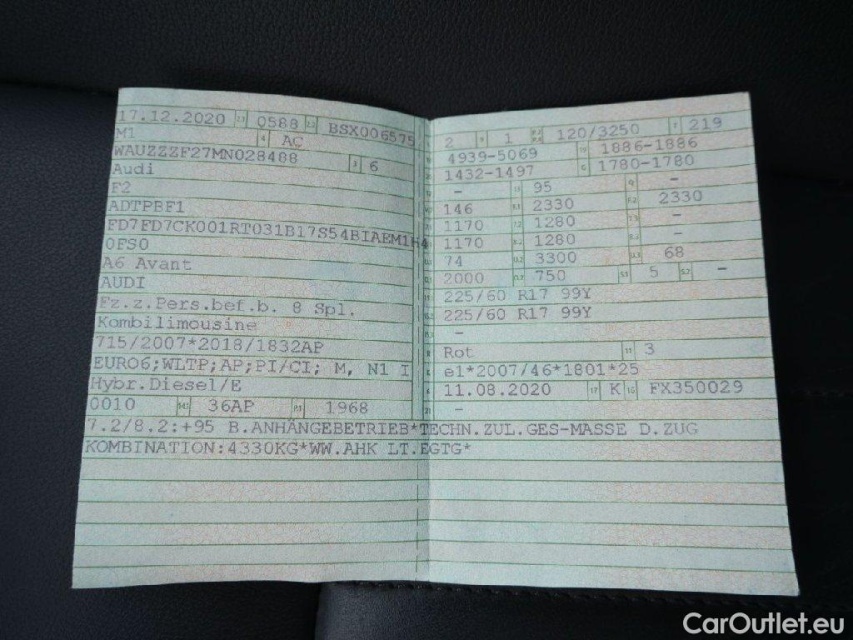 17.12.2020 0588 BSX006575
M1 AC
WAUZZZF27MN028488 6
Audi
F2
ADTPBF1
FD7FD7CK001RT031B17S54BIAEM1H4
0FS0
A6 Avant
AUDI
Fz.z.Pers.bef.b. 8 Spl.
Kombilimousine
715/2007*2018/1832AP
EURO6;WLTP;AP;PI/CI; M, N1 I
Hybr.Diesel/E
0010 36AP 1968
2 1 120/3250 219
4939-5069 1886-1886
1432-1497 1780-1780
- 95 -
146 2330 2330
1170 1280 -
1170 1280 -
74 3300 68
2000 750 5 -
225/60 R17 99Y
225/60 R17 99Y
-
Rot 3
e1*2007/46*1801*25
11.08.2020 K FX350029
-
7.2/8.2:+95 B.ANHÄNGEBETRIEB*TECHN.ZUL.GES-MASSE D.ZUG
KOMBINATION:4330KG*WW.AHK LT.EGTG*
CarOutlet.eu